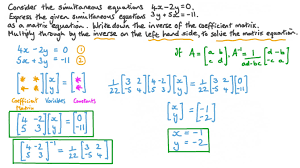 Consider the simultaneous equations 4x-2y=0,
3y+5x=-11.
Express the given simultaneous equation
as a matrix equation. Write down the inverse of the coefficient matrix.
Multiply through by the inverse on the left hand side, to solve the matrix equation.
4x - 2y = 0 ①
5x + 3y = -11 ②
If A = [a b; c d], A⁻¹ = 1/(ad-bc) [d -b; -c a]
[* *; * *] [x; y] = [*; *]
Coefficient Matrix Variables Constants
1/22 [3 2; -5 4] [4 -2; 5 3] [x; y] = 1/22 [3 2; -5 4] [0; -11]
[4 -2; 5 3] [x; y] = [0; -11]
[x; y] = [-1; -2]
[4 -2; 5 3]⁻¹ = 1/22 [3 2; -5 4]
x = -1
y = -2